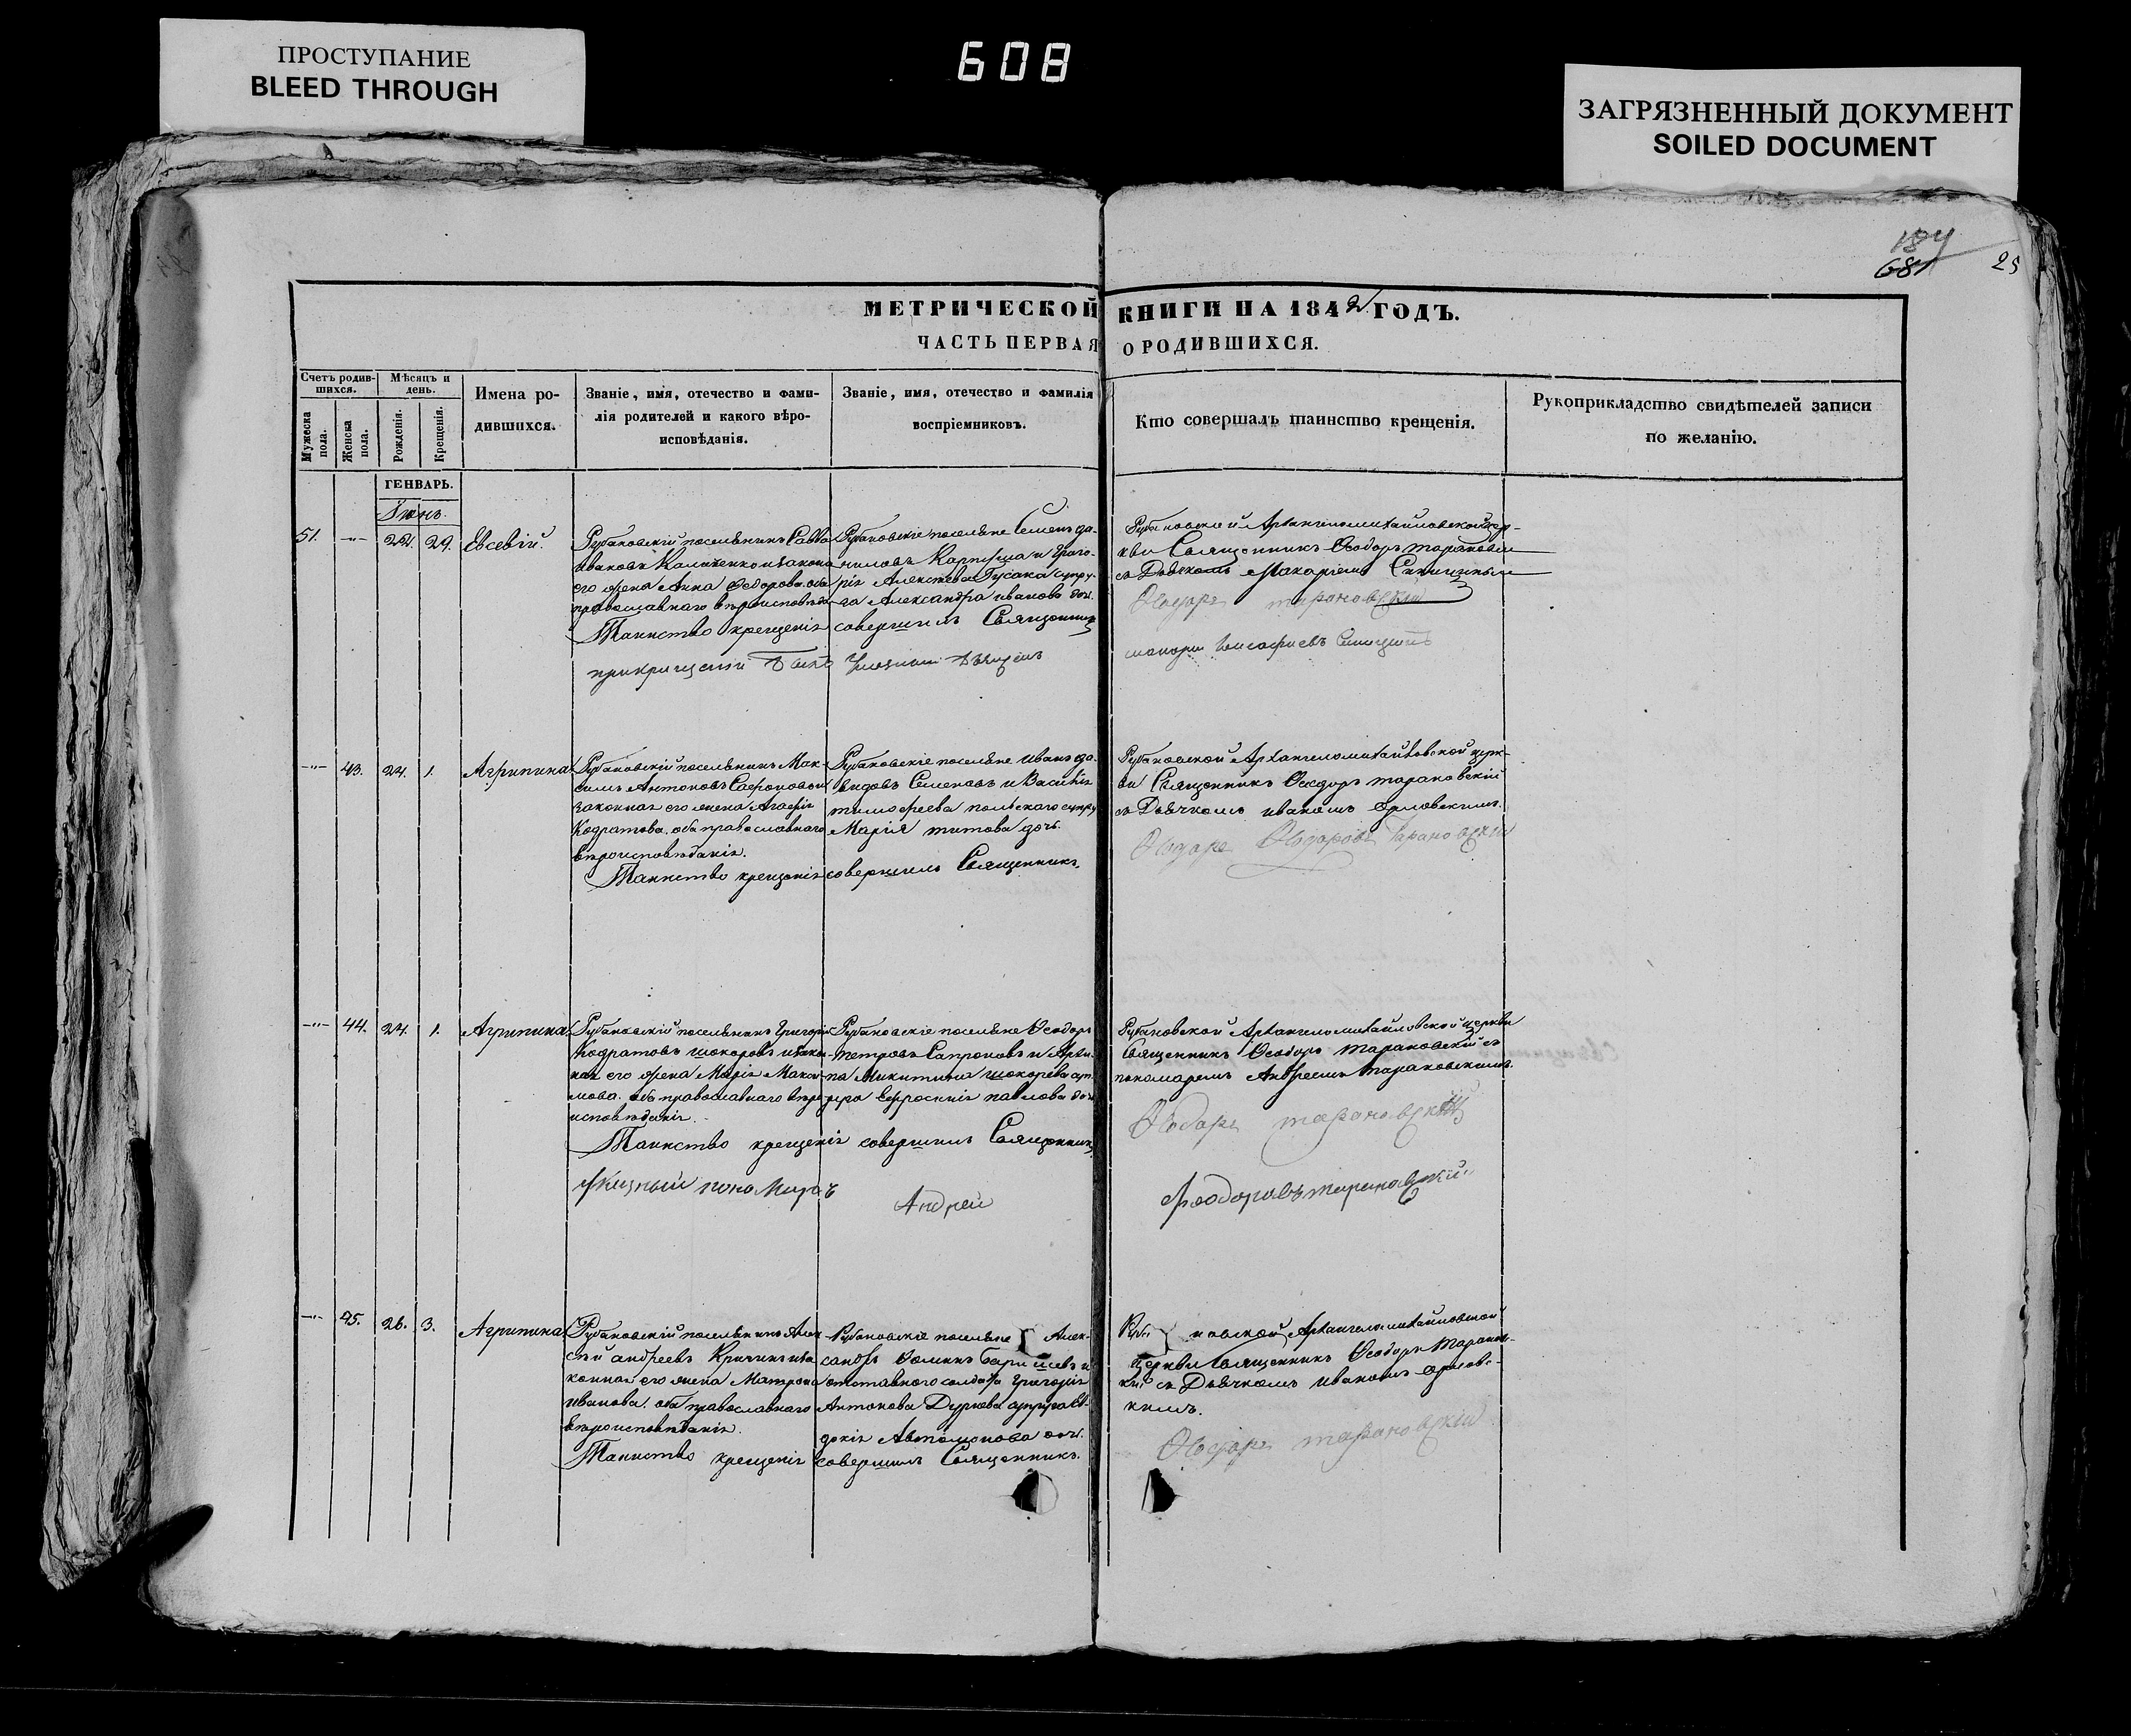 ПРОСТУПАНИЕ
BLEED THROUGH
608
ЗАГРЯЗНЕННЫЙ ДОКУМЕНТ
SOILED DOCUMENT
184
681
25
МЕТРИЧЕСКОЙ КНИГИ НА 1842 ГОДЪ.
ЧАСТЬ ПЕРВАЯ О РОДИВШИХСЯ.
Счетъ родив-
шихся.
Мужеска
пола.
Женска
пола.
Мѣсяцъ и
день.
Рожденія.
Крещенія.
Имена ро-
дившихся.
Званіе, имя, отечество и фами-
лія родителей и какого вѣро-
исповѣданія.
Званіе, имя, отечество и фамилія
воспріемниковъ.
Кто совершалъ таинство крещенія.
Рукоприкладство свидѣтелей записи
по желанію.
ГЕНВАРЬ.
Іюнь.
51. -"- 24. 29. Евсевій.
Рубановскій поселянинъ Савва
Ивановъ и закона
его жена Анна Ѳеодорова. оба
православнаго вѣроисповѣда
Рубановскіе поселяне Семенъ да-
ниловъ и Григо-
рія Алексѣева Гусака супру-
га Александра иванова доч.
Таинство крещенія совершилъ Священникъ
Рубановской Архангеломихайловской цер-
кви Священникъ Ѳеодоръ тарановскій
съ Дьячкомъ Макаріемъ
тарановскій
-"- 43. 24. 1. Агрипина
Рубановскій поселянинъ Мак-
симъ Антоновъ Сафроновъ и
законная его жена Агафія
Кодратова. оба православнаго
вѣроисповѣданія.
Рубановскіе поселяне Иванъ да-
видовъ Семеновъ и Василія
тимофеева польскаго супру
Марія титова дочь.
Таинство крещенія совершилъ Священникъ
Рубановской Архангеломихайловской церк-
ви Священникъ Ѳеодоръ тарановскій
съ Дьячкомъ иваномъ орловскимъ.
Тарановскій
-"- 44. 24. 1. Агрипина
Рубановскій поселянинъ Григорій
Кодратовъ шокоревъ и закон-
ная его жена Марія Макси-
мова. оба православнаго вѣро
исповѣданія.
Рубановскіе поселяне Ѳеодоръ
Петровъ Сапроновъ и
Никитина шокорева суп.
Ефросинія павлова доч
Таинство крещенія совершилъ Священникъ
Андрей
Рубановской Архангеломихайловской церкви
Священникъ Ѳеодоръ тарановскій съ
пономаремъ Андреемъ тарановскимъ.
тарановскій
Феодоровъ тарановский
-"- 45. 26. 3. Агрипина
Рубановскій поселянинъ Алек
сѣй андреевъ Кричинъ и за
конная его жена Матрона
иванова. оба православнаго
вѣроисповѣданія.
Рубановскіе поселяне Алек-
сандръ и
отставного солдата Григорія
Антонова Дурнева супруга Ев-
докія Автомонова доч.
Таинство крещенія совершилъ Священникъ.
новской Архангеломихайловской
церкви Священникъ Ѳеодоръ Таранов-
кій съ Дьячкомъ иваномъ орловс-
кимъ.
тарановскій